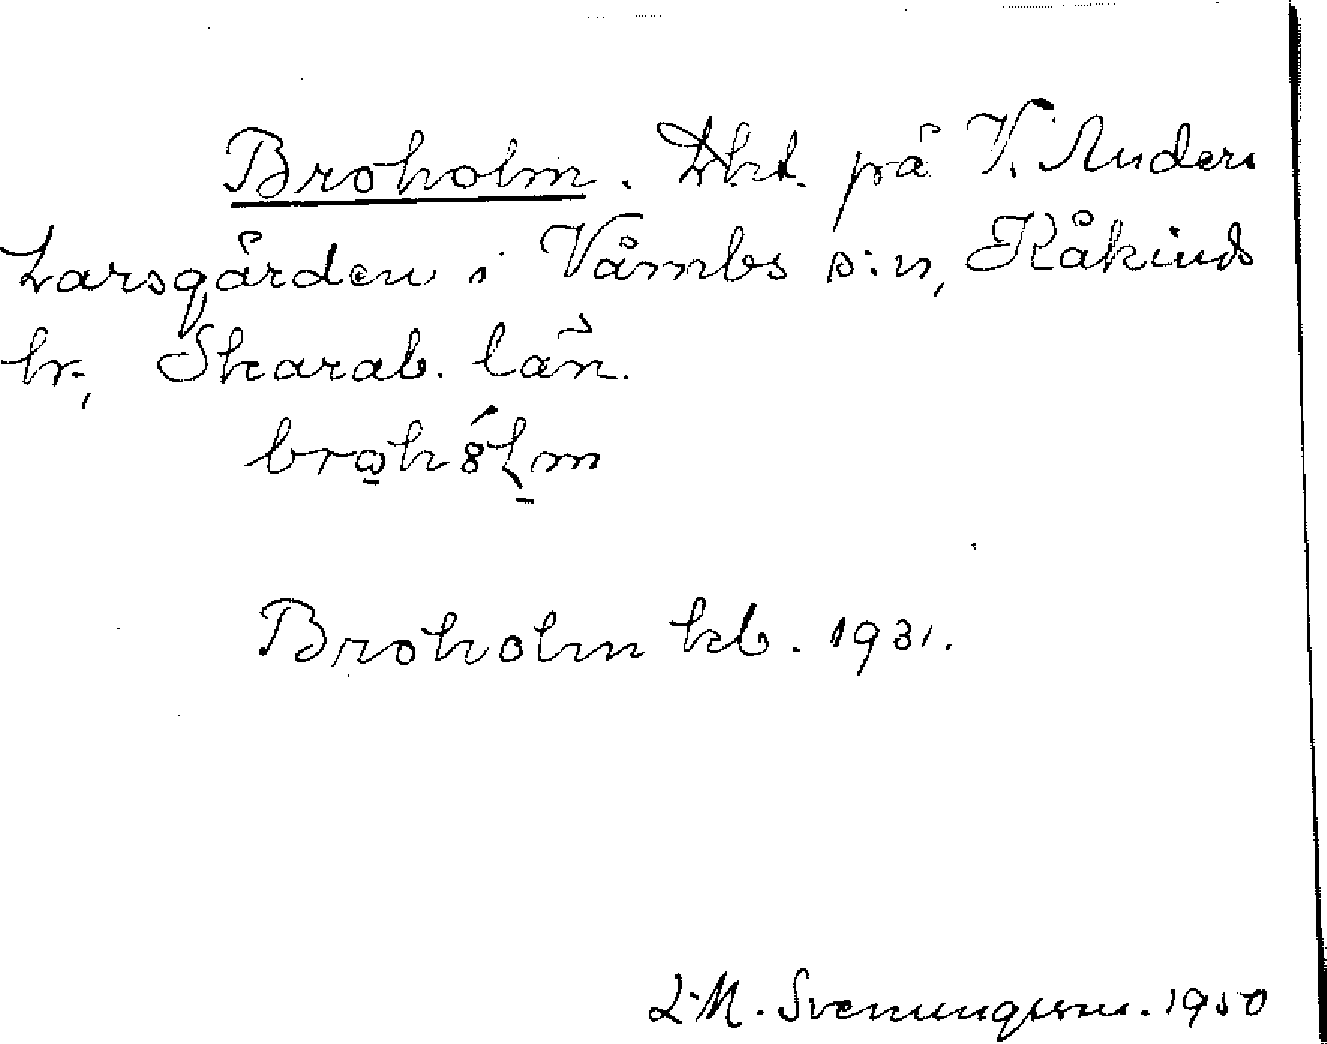 Broholm. Lht. på V. Anders
Larsgården i Våmbs s:n, Kåkinds
hr, Skarab. län.
broh

Broholm kb. 1931.
L-M. Svenungsson. 1950